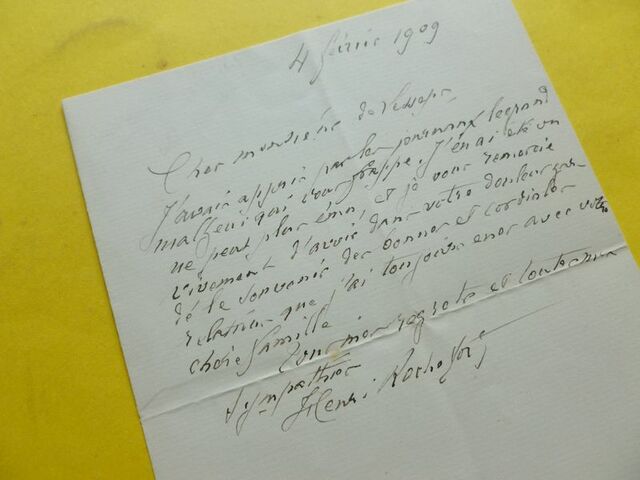 4 février 1909
Cher monsieur de Lesseps
J'avais appris par les journaux le grand
malheur qui vous frappe. J'en ai été on
ne peut plus ému, et je vous remercie
vivement d'avoir dans votre douleur gar
dé le souvenir des bonnes et cordiales
relations que j'ai toujours eues avec votre
chère famille.
Tous mes regrets et toutes mes
sympathies
Henri Rochefort